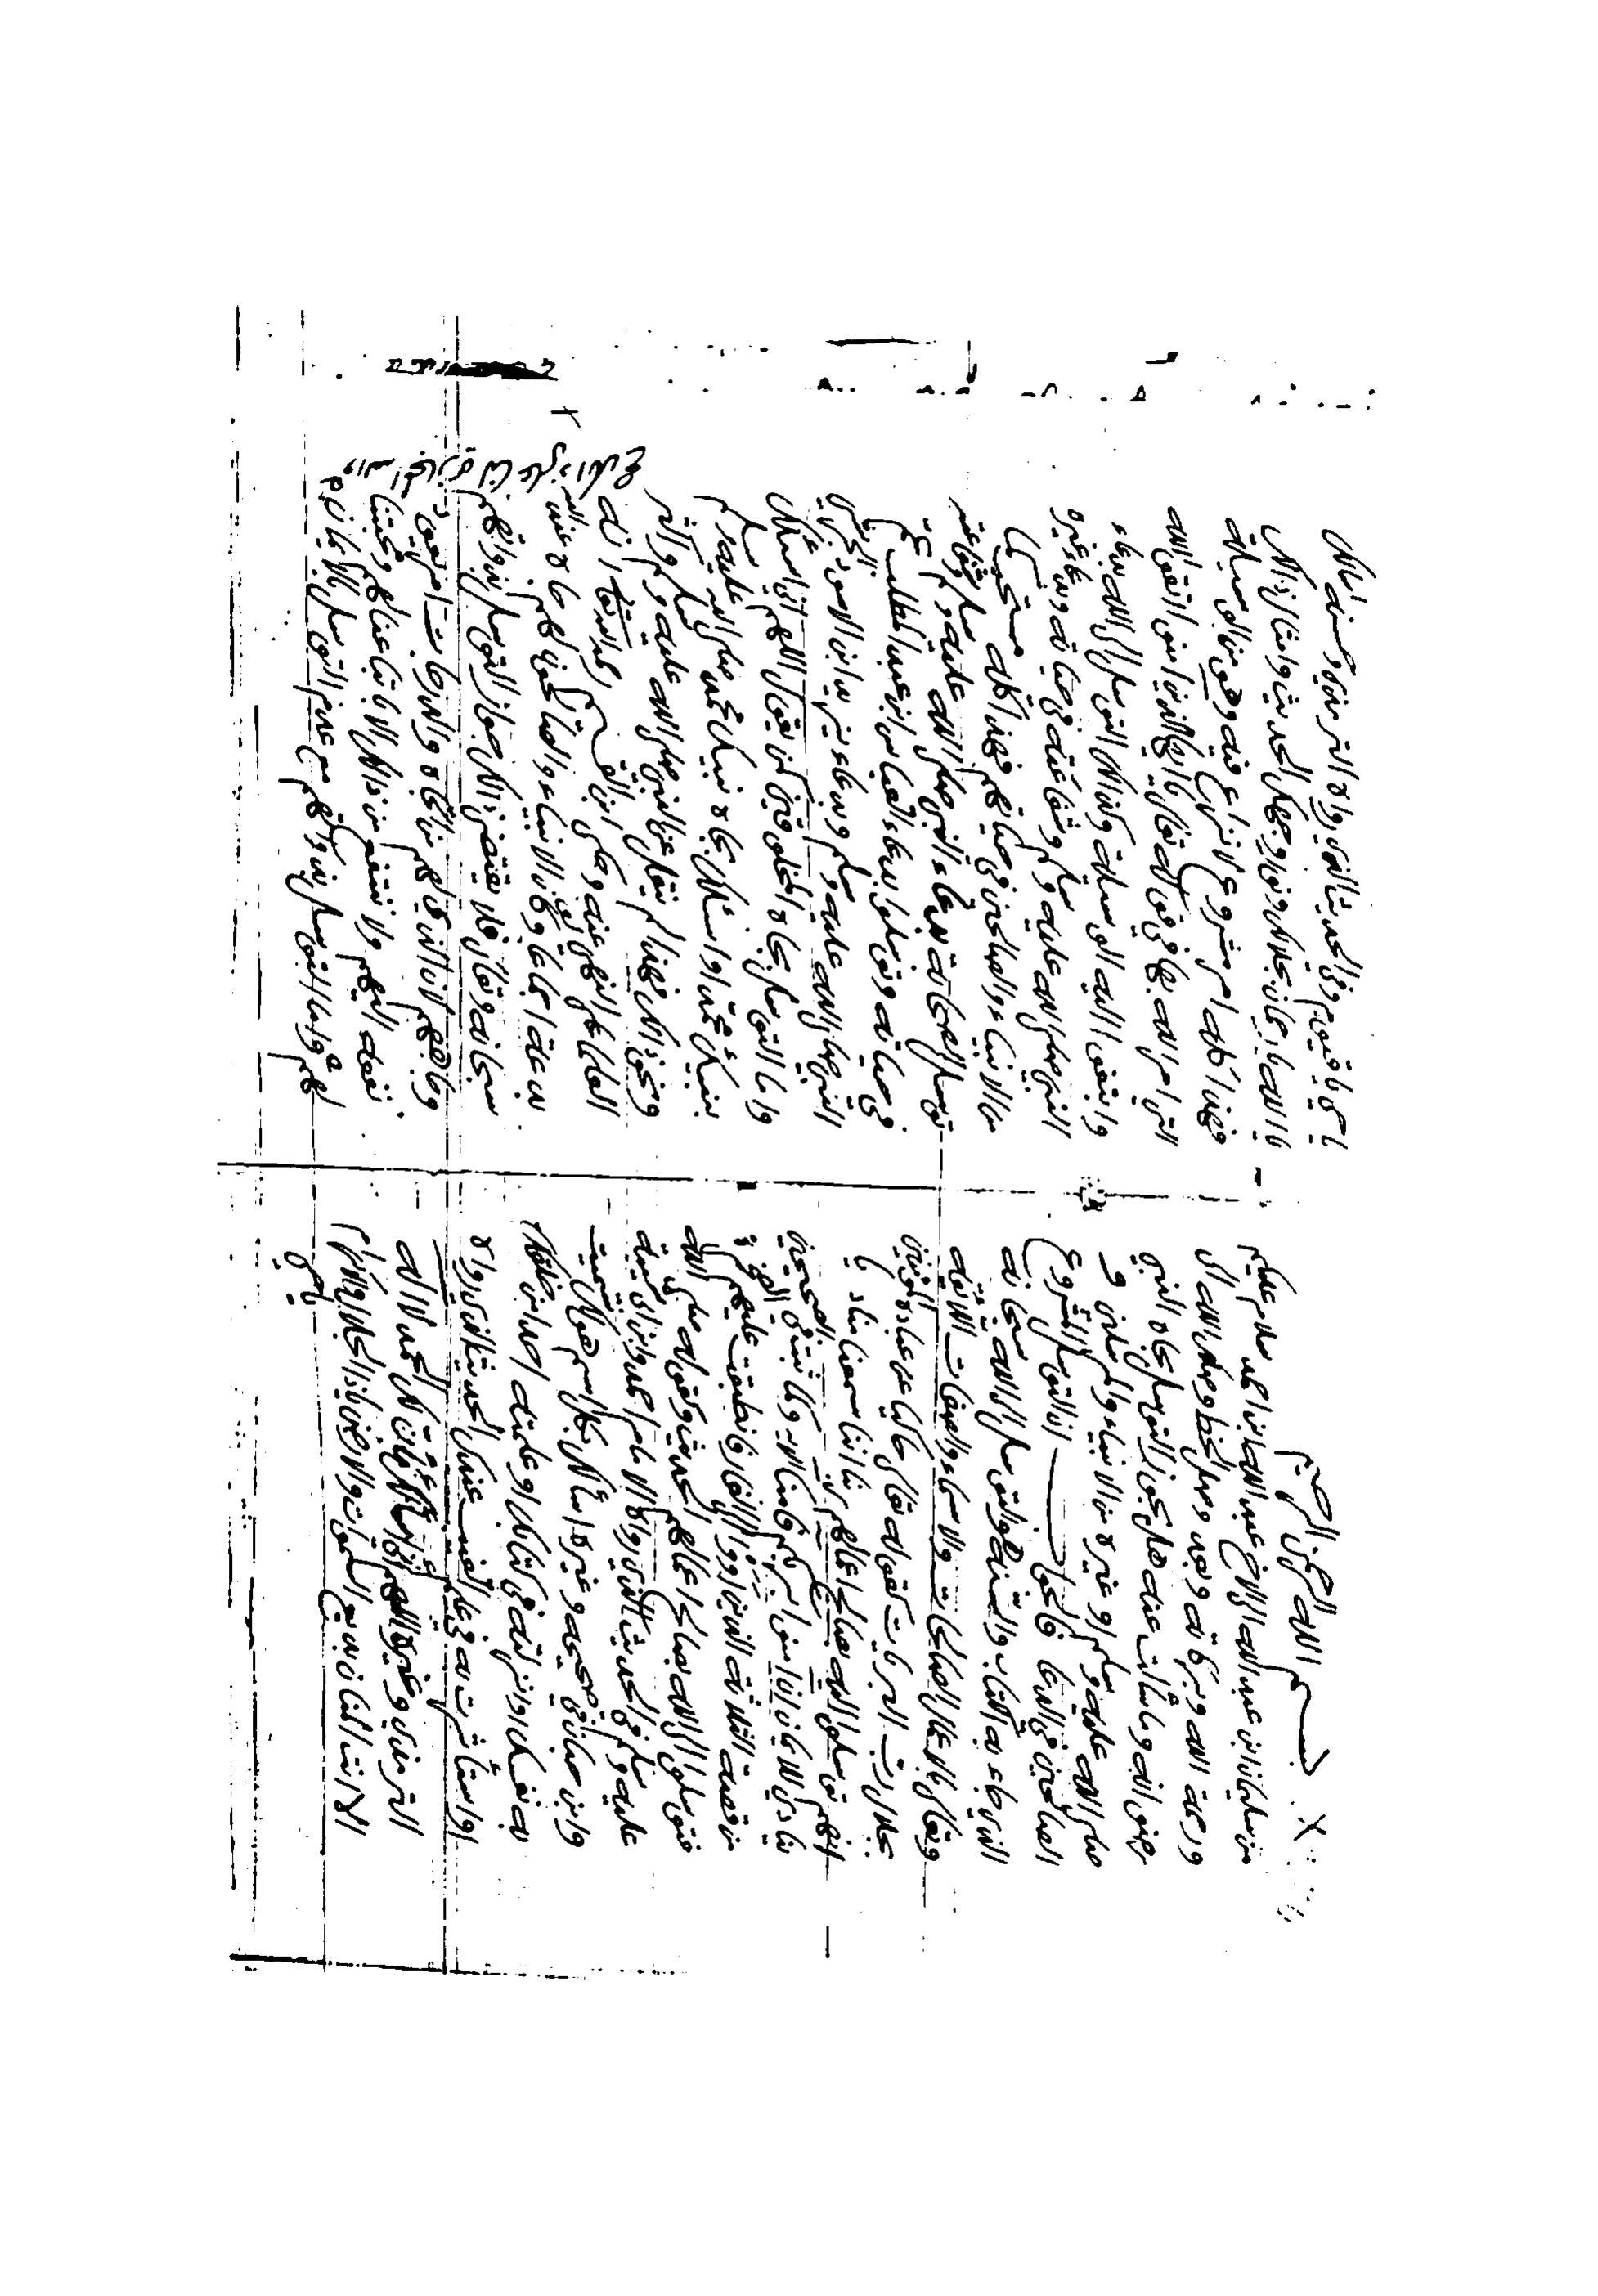 بسم الله الرحمن الرحيم
من سليمان ابن عبد الله الى الاخ عبد الله ابن احمد سلام عليكم
ورحمة الله وبركاته وبعد وصل الخط وصلك الله الى
رضوانه وما سألت عنه هل يجوز التوسل بجاه النبي
صلى الله عليه وسلم او غيره من الانبياء والمرسلين و
الصالحين في الدعا فالجواب ان التوسل المشروع
الذي جاء به الكتاب والسنة هو التوسل الى الله سبحانه
وتعالى بالاعمال الصالحات والاسماء والصفات اللائقه
بجلال رب البريات كقوله تعالى حاكيا عن عباده المؤمنين
انهم توسلوا اليه بصالح اعمالهم ربنا اننا سمعنا مناديا
ينادي للايمان ان آمنوا بربكم فآمنا الايه وكما ثبت في الصحيحين
من قصة الثلاثة الذين اووا الى الغار فانطبقت عليهم الصخرة
فتوسلوا الى الله بصالح اعمالهم الحديث وكقوله صلى الله
عليه وسلم في الحديث الذي رواه الامام احمد
وابن حبان في صحيحه وغيره اسألك بكل اسم هو لك سميت
به نفسك او انزلته في كتابك او علمته احدا من خلقك
او استأثرت به في علم الغيب عندك الحديث وكما رواه
الترمذي وغيره اللهم اني اسألك بان لك الحمد لا اله
الا انت المنان بديع السموات والارض ياذا الجلال والاكرام
ياحي
يا حي يا قيوم وفي الحديث الذي رواه الترمذي وحسنه اسألك
يا الله يا رحمن بجلالك ونور وجهك الحديث وامثال ذلك
فهذا كله امر مشروع لا نزاع فيه وهو من الوسيلة
التي امر الله بها في قوله تعالى يا ايها الذين امنوا اتقوا الله
وابتغوا اليه الوسيلة وكذلك التوسل الى الله بدعاء
النبي صلى الله عليه وسلم وشفاعته في حياته وبدعاء غيره
من الانبياء والصالحين في حياتهم فهذا كله مستحب كما
توسل الصحابة بدعاء النبي صلى الله عليه وسلم وشفاعته
في حياته وتوسلوا بدعاء العباس ابن عبد المطلب عم
النبي صلى الله عليه وسلم وبدعاء يزيد ابن الاسود الجرشي
واما التوسل بجاه المخلوقين كمن يقول اللهم اني اسألك
بجاه نبيك محمد صلى الله عليه وسلم
ونحو ذلك فهذا لم ينقل عن النبي صلى الله عليه وسلم واكثر
العلماء على النهي عنه وحكى ابن القيم رحمه الله تعالى انه
بدعة اجماعا ولو كان الانبياء والصالحون لهم جاه عند الله
سبحانه وتعالى فلا يقتضي ذلك جواز التوسل بذواتهم
وجاههم لان الذي لهم من الجاه والدرجات امر يعود
نفعه اليهم ولا ننتفع من ذلك الا باتباعنا لهم ومحبتنا
لهم واما التوسل بذواتهم مع عدم التوسل بالايمان بهم
والله المجازي لنا على ذلك